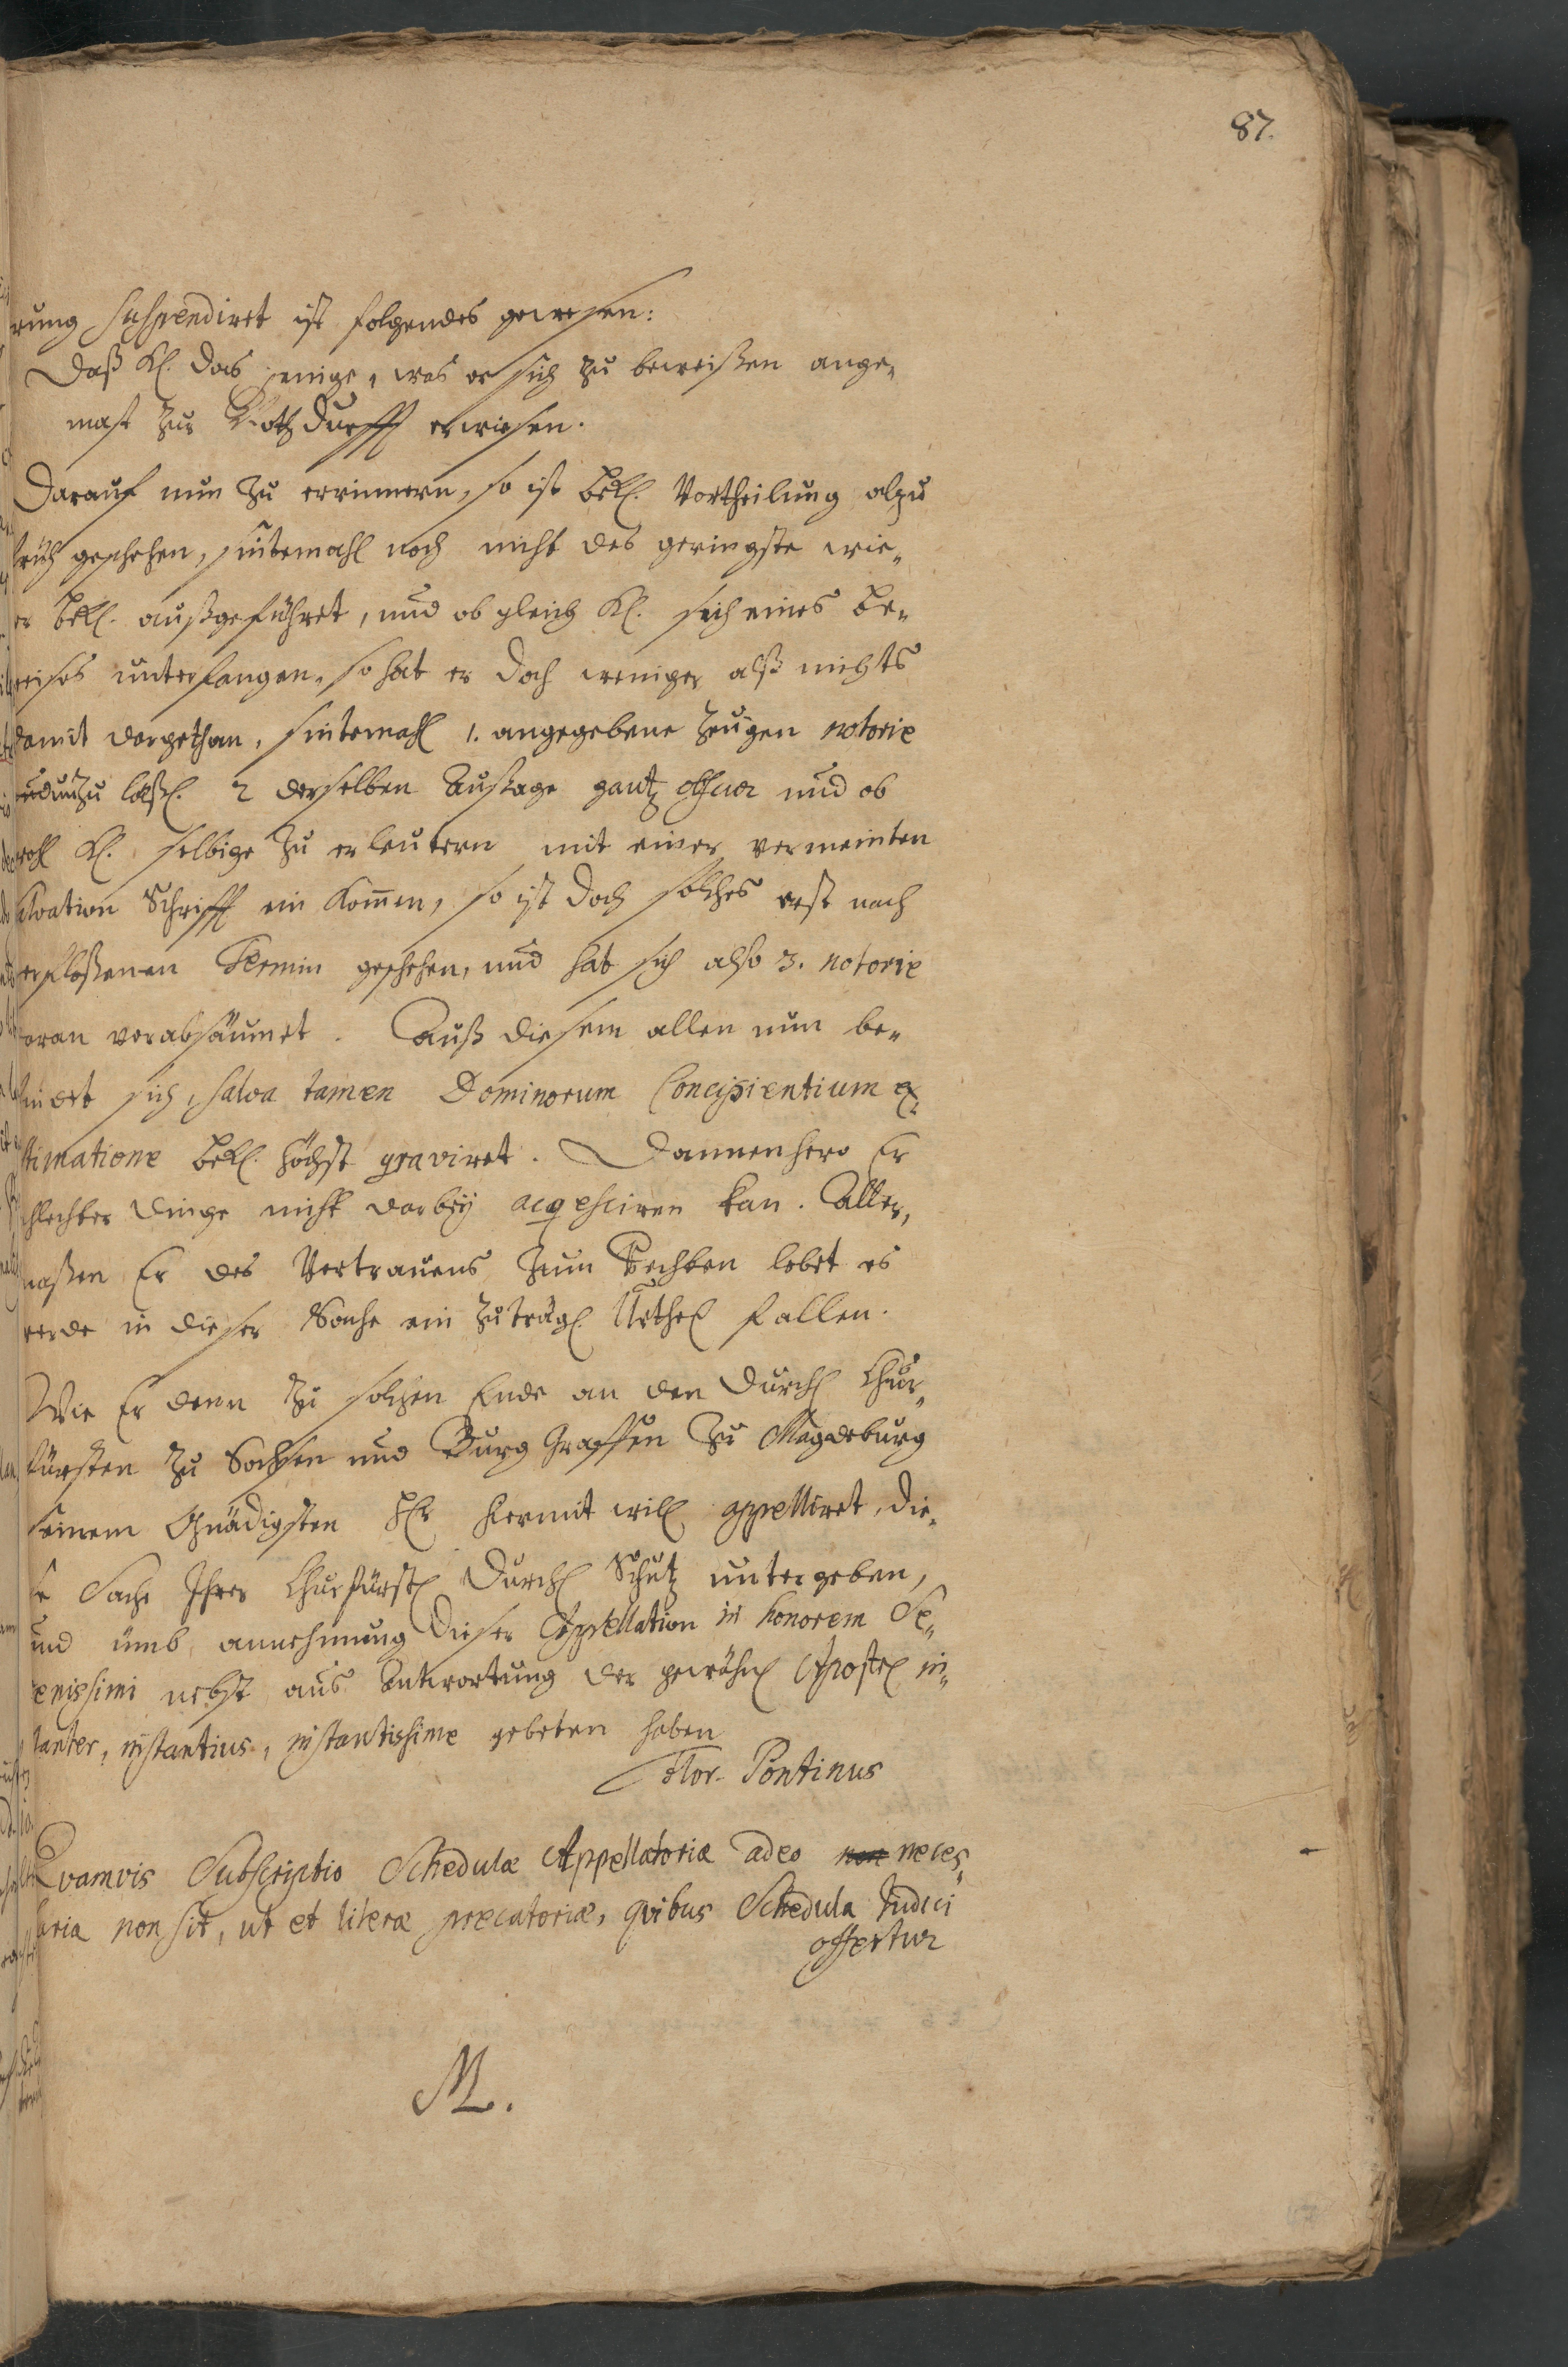 87.
rung suspendiret ist folgendes gewesen:
Daß Kl. das jenige, was er sich zu beweißen ange„
mast zur Nothdurfft erwiesen.
Darauf nun zu errinnern, so ist Bekl. Vortheilung alzu
früh geschehen, sintemahl noch nicht das geringste wie„
er Bekl. außgeführet, und ob gleich Kl. sich eines Be„
weises unterfangen, so hat er doch weniger alß nichts
damit dargethan, sintemahl 1. angegebene Zeugen notorie
2 derselben Außage gantz obscur und ob
wohl Kl. selbige zu erleutern mit einer vermeinten
Schrifft ein kommen, so ist doch solches erst nach
verfloßenen Termin geschehen, und hat sich also 3. notorie
daran verabsäumet. Auß diesem allen nun be„
findet sich, salva tamen Dominorum Concipientium ex„
stimatione Bekl. höchst graviret. Dannenhero Er
schlechter dinge nicht darbey acqviesciren kan. Aller„
maßen Er des Vertrauens zum Rechten lebet es
werde in dieser Sache ein zuträgl. Urthel fallen.
Wie Er denn zu solchen Ende an den Durchl Chur„
fürsten zu Sachsen und Burg Graffen zu Magdeburg
seinem Gnädigsten H. hiermit will appelliret, die„
se Sache Ihrer Churfürstl Durchl Schutz untergeben,
und ümb annehmung dieser Appellation in honorem Se„
renissimi nebst aus Antwortung der gewöhnl Apostel in„
stanter, instantius, instantissime gebeten haben
Flor. Pontinus
Qvamvis Subscriptio Schedulæ Appellatoriæ adeo non neces„
saria non sit, ut et literæ precatoriæ, qvibus Schedula Iudici
offertur
M.